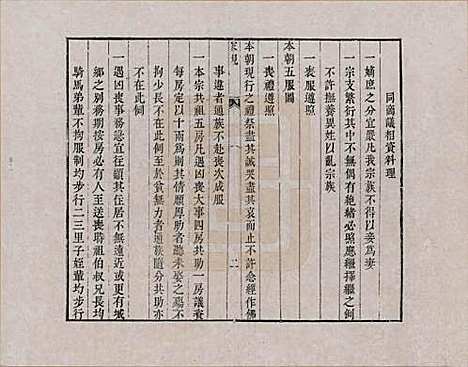 同齒讓相資料理
一嫡庶之分宜嚴凡我宗族不得以妾為妻
一宗支繁衍其中不無偶有絶緒必照應繼擇繼之例
不許撫養異姓以亂宗族
一喪服遵照
本朝五服圖
一喪禮遵照
本朝現行之禮祭盡其誠哭盡其哀而止不許念經作佛
家規
二
事違者通族不赴喪次成服
一本宗共祖五房凡遇凶喪大事四房共助一房議賚
每房定以十兩為率其情願厚助者聽未娶之殤不
拘少長不在此例通族隨分往弔至貧無歸通族亦
不在此例
一遇凶喪事通族均往其住居不無遠近更有城
鄉之別務期按房必有人至送喪時祖伯叔兄長均
騎馬弟輩不拘服制均步行二三里子姪輩均步行